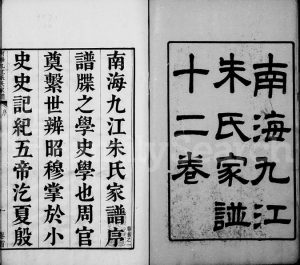 南海九江
朱氏家譜
十二卷
南海九江朱氏家譜序
譜牒之學史學也周官
奠繫世辨昭穆掌於小
史史記紀五帝迄夏殷